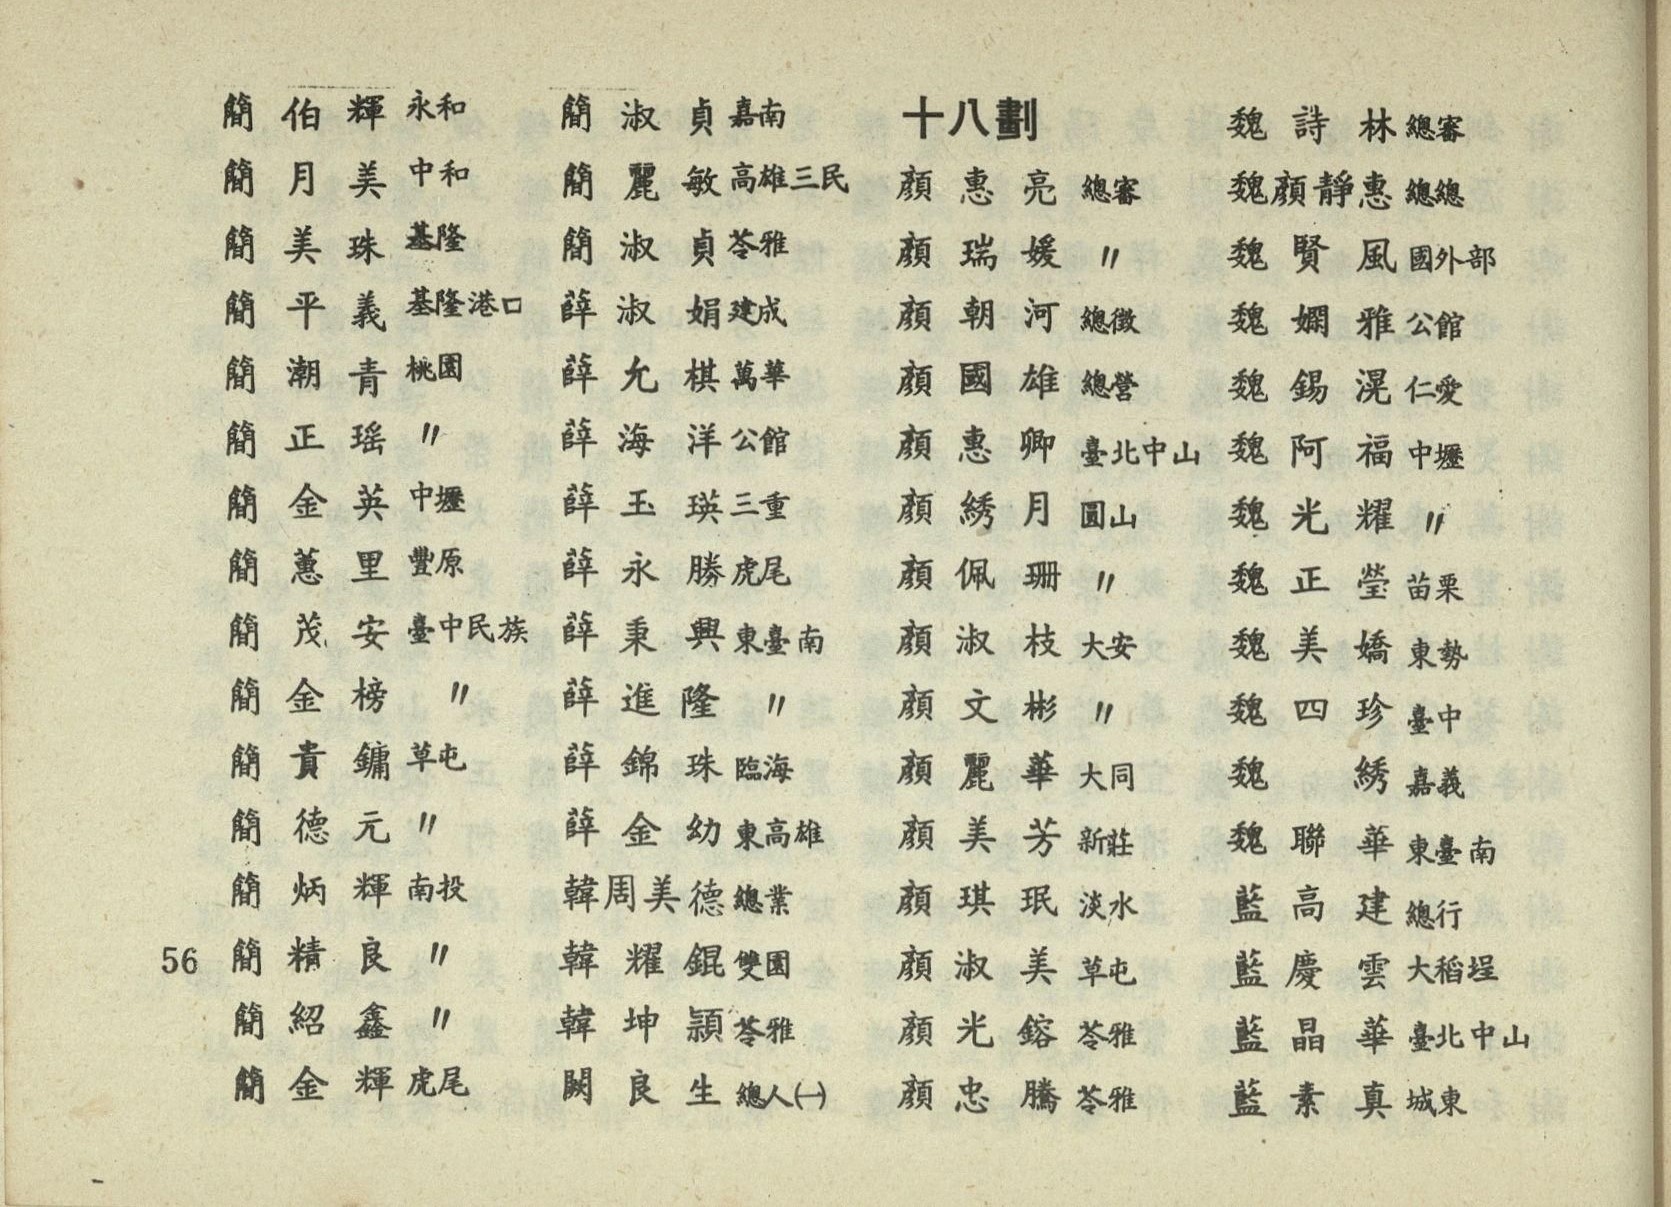 簡伯輝 永和
簡月美 中和
簡美珠 基隆
簡平義 基隆港口
簡潮青 桃園
簡正瑤 〃
簡金英 中壢
簡蕙里 豐原
簡茂安 臺中民族
簡金榜 〃
簡貴鏞 草屯
簡德元 〃
簡炳輝 南投
簡精良 〃
簡紹鑫 〃
簡金輝 虎尾
簡淑貞 嘉南
簡麗敏 高雄三民
簡淑貞 苓雅
薛淑娟 建成
薛允棋 萬華
薛海洋 公館
薛玉瑛 三重
薛永勝 虎尾
薛秉興 東臺南
薛進隆 〃
薛錦珠 臨海
薛金幼 東高雄
韓周美德 總業
韓耀錕 雙園
韓坤頴 苓雅
闕良生 總人㈠
十八劃
顏惠亮 總審
顏瑞媛 〃
顏朝河 總徵
顏國雄 總營
顏惠卿 臺北中山
顏綉月 圓山
顏佩珊 〃
顏淑枝 大安
顏文彬 〃
顏麗華 大同
顏美芳 新莊
顏琪珉 淡水
顏淑美 草屯
顏光鎔 苓雅
顏忠騰 苓雅
魏詩林 總審
魏顏靜惠 總總
魏賢風 國外部
魏嫻雅 公館
魏錫滉 仁愛
魏阿福 中壢
魏光耀 〃
魏正瑩 苗栗
魏美嬌 東勢
魏四珍 臺中
魏綉 嘉義
魏聯華 東臺南
藍高建 總行
藍慶雲 大稻埕
藍晶華 臺北中山
藍素真 城東
56